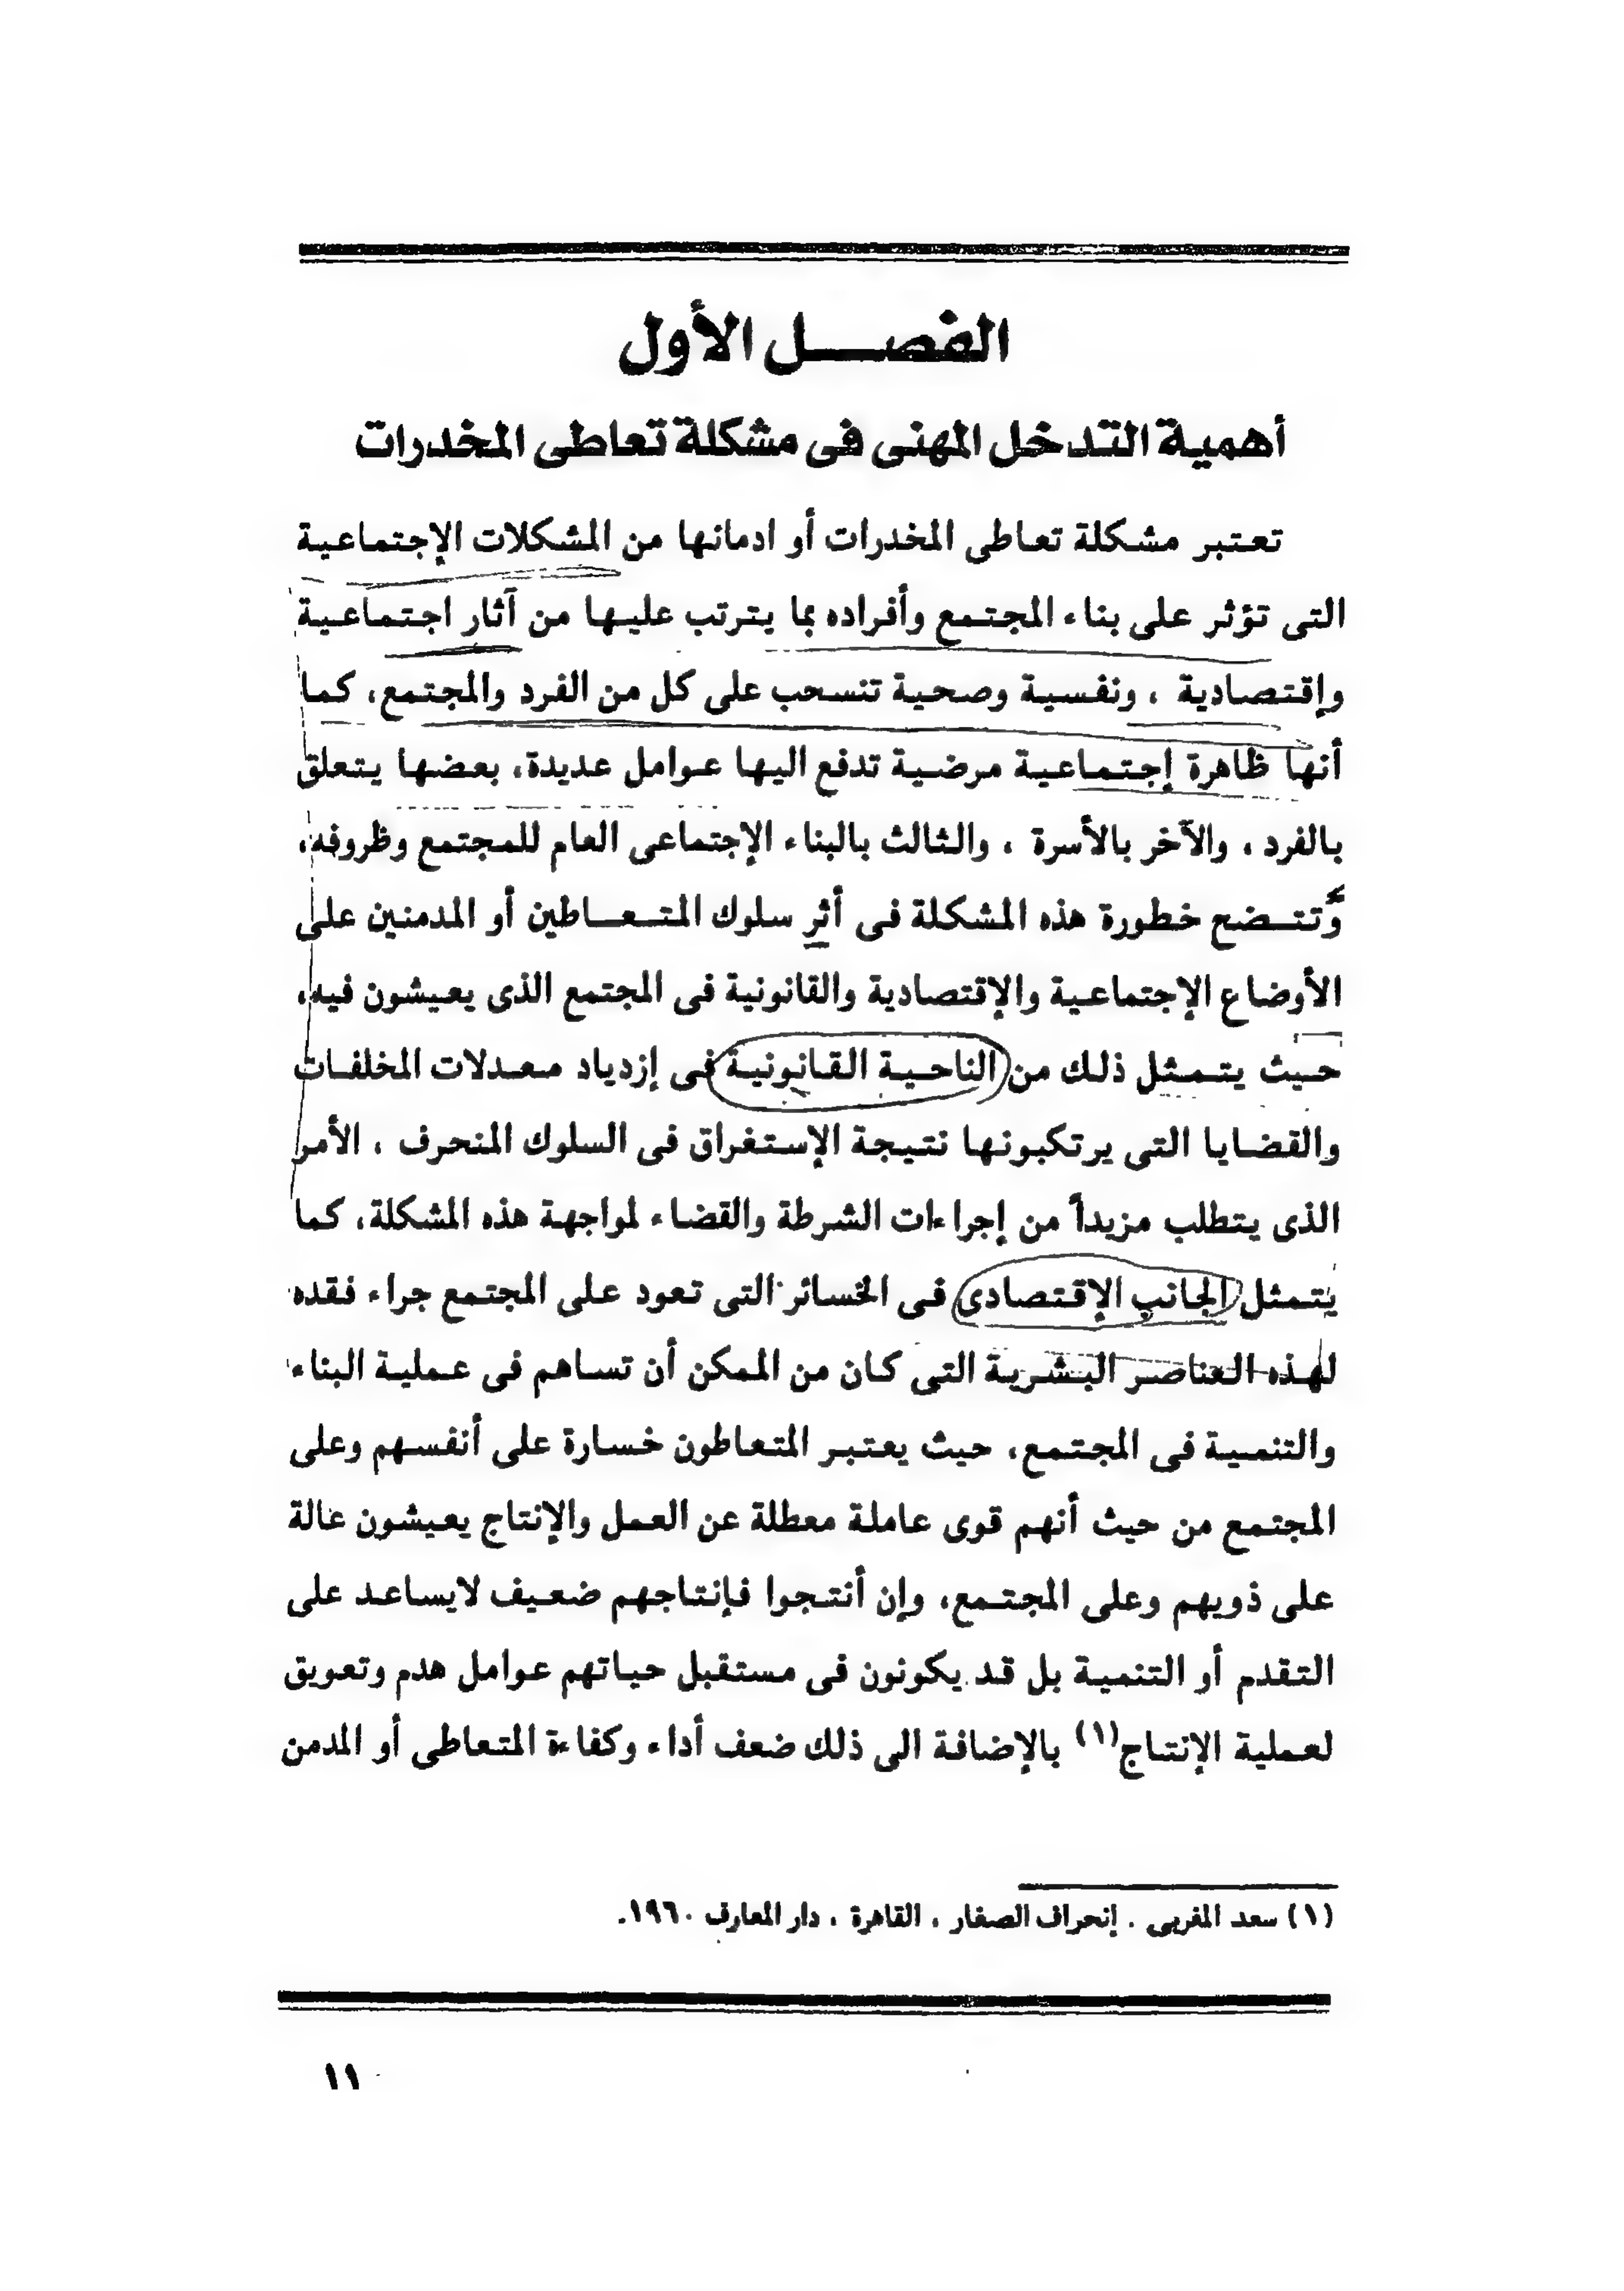 الفصـــل الأول
أهمية التدخل المهنى فى مشكلة تعاطى المخدرات
تعتبر مشكلة تعاطى المخدرات أو ادمانها من المشكلات الإجتماعية
التى تؤثر على بناء المجتمع وأفراده بما يترتب عليها من آثار اجتماعية
وإقتصادية ، ونفسية وصحية تنسحب على كل من الفرد والمجتمع، كما
أنها ظاهرة إجتماعية مرضية تدفع اليها عوامل عديدة، بعضها يتعلق
بالفرد ، والآخر بالأسرة ، والثالث بالبناء الإجتماعى العام للمجتمع وظروفه،
وتتضح خطورة هذه المشكلة فى أثر سلوك المتعاطين أو المدمنين على
الأوضاع الإجتماعية والإقتصادية والقانونية فى المجتمع الذى يعيشون فيه،
حيث يتمثل ذلك من الناحية القانونية فى إزدياد معدلات المخلفات
والقضايا التى يرتكبونها نتيجة الإستغراق فى السلوك المنحرف ، الأمر
الذى يتطلب مزيداً من إجراءات الشرطة والقضاء لمواجهة هذه المشكلة، كما
يتمثل الجانب الإقتصادى فى الخسائر التى تعود على المجتمع جراء فقده
لهذه العناصر البشرية التى كان من الممكن أن تساهم فى عملية البناء
والتنمية فى المجتمع، حيث يعتبر المتعاطون خسارة على أنفسهم وعلى
المجتمع من حيث أنهم قوى عاملة معطلة عن العمل والإنتاج يعيشون عالة
على ذويهم وعلى المجتمع، وإن أنتجوا فإنتاجهم ضعيف لايساعد على
التقدم أو التنمية بل قد يكونون فى مستقبل حياتهم عوامل هدم وتعويق
لعملية الإنتاج(١) بالإضافة الى ذلك ضعف أداء وكفاءة المتعاطى أو المدمن
(١) سعد المغربى . إنحراف الصغار ، القاهرة ، دار المعارف ١٩٦٠.
١١